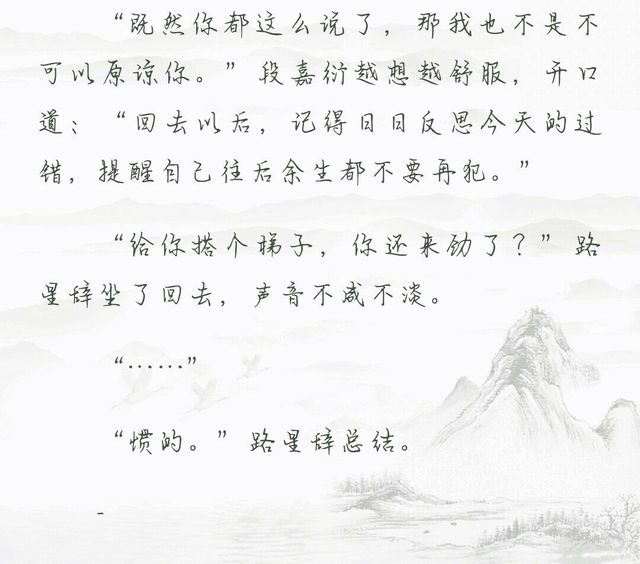 “既然你都这么说了，那我也不是不
可以原谅你。”段嘉衍越想越舒服，开口
道：“回去以后，记得日日反思今天的过
错，提醒自己往后余生都不要再犯。”
“给你搭个梯子，你还来劲了？”路
星辞坐了回去，声音不咸不淡。
“……”
“惯的。”路星辞总结。
-